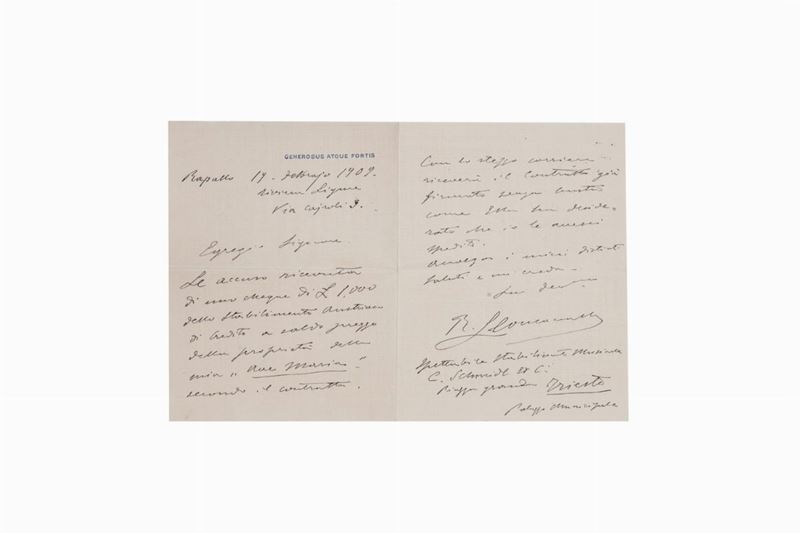 GENEROSUS ATQUE FORTIS
Rapallo 19. febbrajo 1909.
Riviera Ligure
Via Cajroli 3.
Egregio Signore.
Le accuso ricevuta
di uno cheque di £ 1,000
dello Stabilimento Austriaco
di Credito a saldo prezzo
della proprietà della
mia "Ave Maria"
secondo il contratto.
Con lo stesso corriere
riceverà il contratto già
firmato senza
come Ella ha deside-
rato che io le avessi
spedito.
i miei distinti
saluti e mi creda
Suo dev
R. Leoncavallo
Spettabile Stabilimento Musicale
C. Schmidl & C:
Piazza grande Trieste
Palazzo Municipale